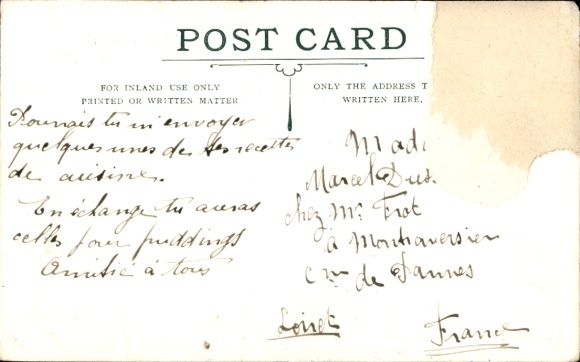 POST CARD
FOR INLAND USE ONLY
PRINTED OR WRITTEN MATTER
ONLY THE ADDRESS T
WRITTEN HERE.
Pourrais tu m'envoyer
quelques unes de tes recettes
de cuisine.
En échange tu auras
celles pour puddings
Amitié à tous
Mada
Marcel
chez Mr Frot
à
Cne de Pannes
Loiret
France